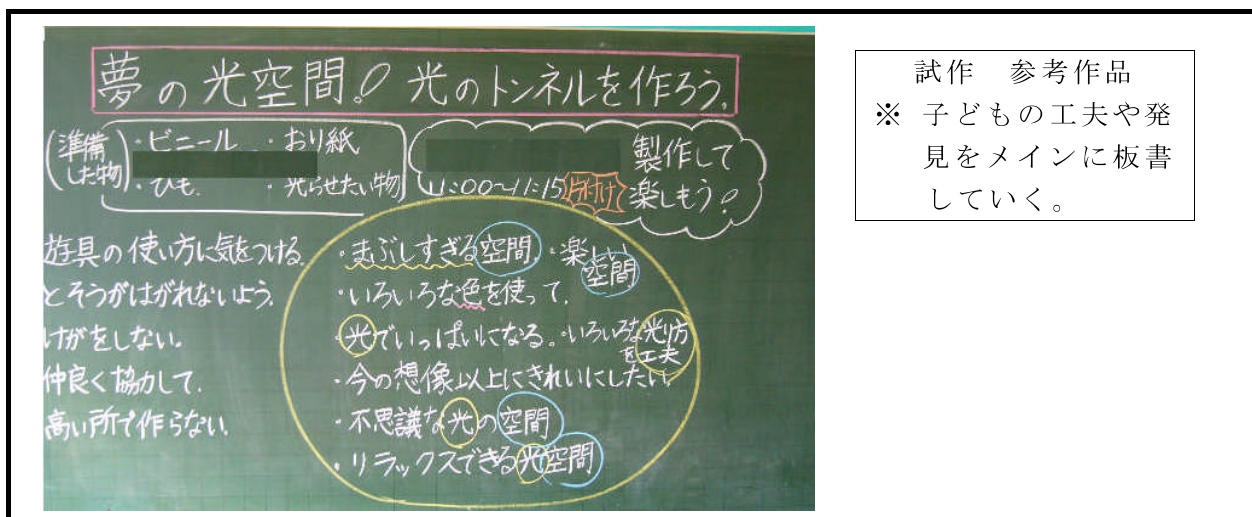 夢の光空間!光のトンネルを作ろう。
(準備した物)
・ビニール ・おり紙
・ひも ・光らせたい物
製作して
11:00~11:15 片付け 楽しもう!
遊具の使い方に気をつける。
とそうがはがれないよう。
けがをしない。
仲良く協力して。
高い所で作らない。
・まぶしすぎる空間。・楽しい空間
・いろいろな色を使って。
・光でいっぱいになる。・いろいろな光り方を工夫
・今の想像以上にきれいにしたい。
・不思議な光の空間
・リラックスできる光空間
試作 参考作品
※ 子どもの工夫や発
見をメインに板書
していく。